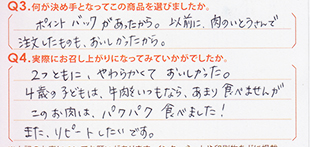 Q3.何が決め手となってこの商品を選びましたか。
ポイントバックがあったから。以前に、肉のいとうさんで
注文したものも、おいしかったから。
Q4.実際にお召し上がりになってみていかがでしたか。
2つともに、やわらかくておいしかった。
4歳の子どもは、牛肉をいつもなら、あまり食べませんが
このお肉は、パクパク食べました!
また、リピートしたいです。